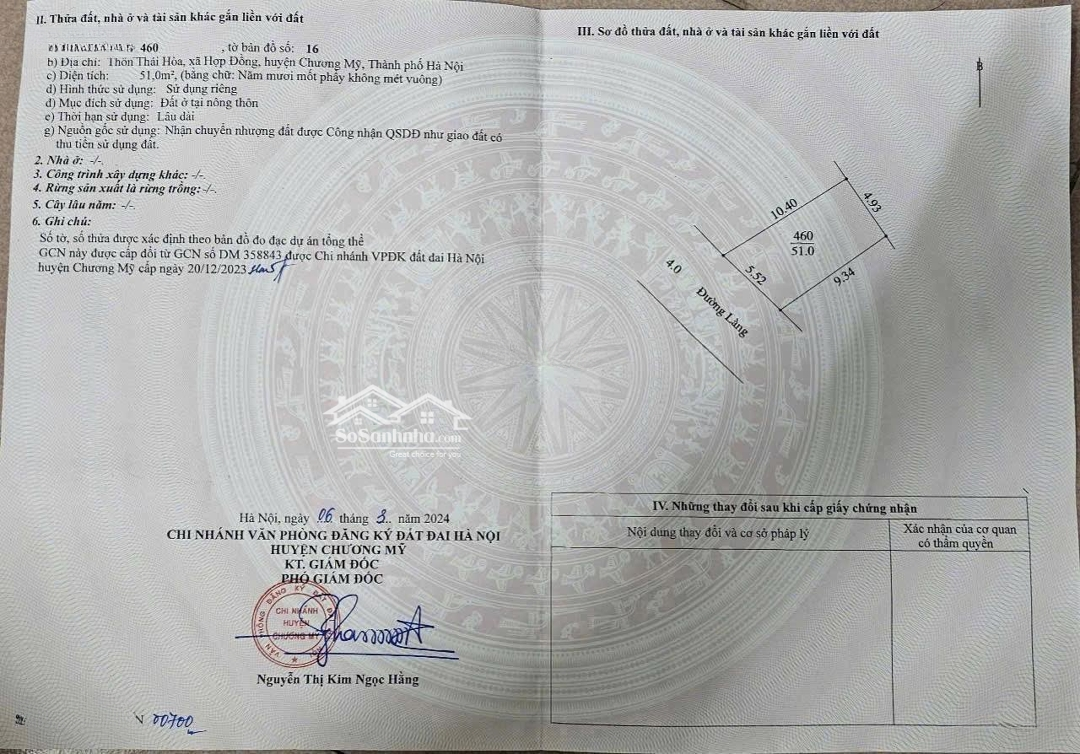 II. Thửa đất, nhà ở và tài sản khác gắn liền với đất
460 , tờ bản đồ số: 16
b) Địa chỉ: Thôn Thái Hòa, xã Hợp Đồng, huyện Chương Mỹ, Thành phố Hà Nội
c) Diện tích: 51,0m², (bằng chữ: Năm mươi mốt phẩy không mét vuông)
d) Hình thức sử dụng: Sử dụng riêng
đ) Mục đích sử dụng: Đất ở tại nông thôn
e) Thời hạn sử dụng: Lâu dài
g) Nguồn gốc sử dụng: Nhận chuyển nhượng đất được Công nhận QSDĐ như giao đất có
thu tiền sử dụng đất.
2. Nhà ở: -/-.
3. Công trình xây dựng khác: -/-.
4. Rừng sản xuất là rừng trồng: -/-.
5. Cây lâu năm: -/-.
6. Ghi chú:
Số tờ, số thửa được xác định theo bản đồ đo đạc dự án tổng thể
GCN này được cấp đổi từ GCN số DM 358843 được Chi nhánh VPĐK đất đai Hà Nội
huyện Chương Mỹ cấp ngày 20/12/2023
SoSanhnha.com
Great choice for you
Hà Nội, ngày 06 tháng 3.. năm 2024
CHI NHÁNH VĂN PHÒNG ĐĂNG KÝ ĐẤT ĐAI HÀ NỘI
HUYỆN CHƯƠNG MỸ
KT. GIÁM ĐỐC
PHÓ GIÁM ĐỐC
VĂN PHÒNG ĐĂNG KÝ ĐẤT
CHI NHÁNH
HUYỆN
CHƯƠNG MỸ
Nguyễn Thị Kim Ngọc Hằng
00700
III. Sơ đồ thửa đất, nhà ở và tài sản khác gắn liền với đất
B
10.40
4.93
460
51.0
5.52
9.34
4.0
Đường Làng
IV. Những thay đổi sau khi cấp giấy chứng nhận
Nội dung thay đổi và cơ sở pháp lý
Xác nhận của cơ quan
có thẩm quyền